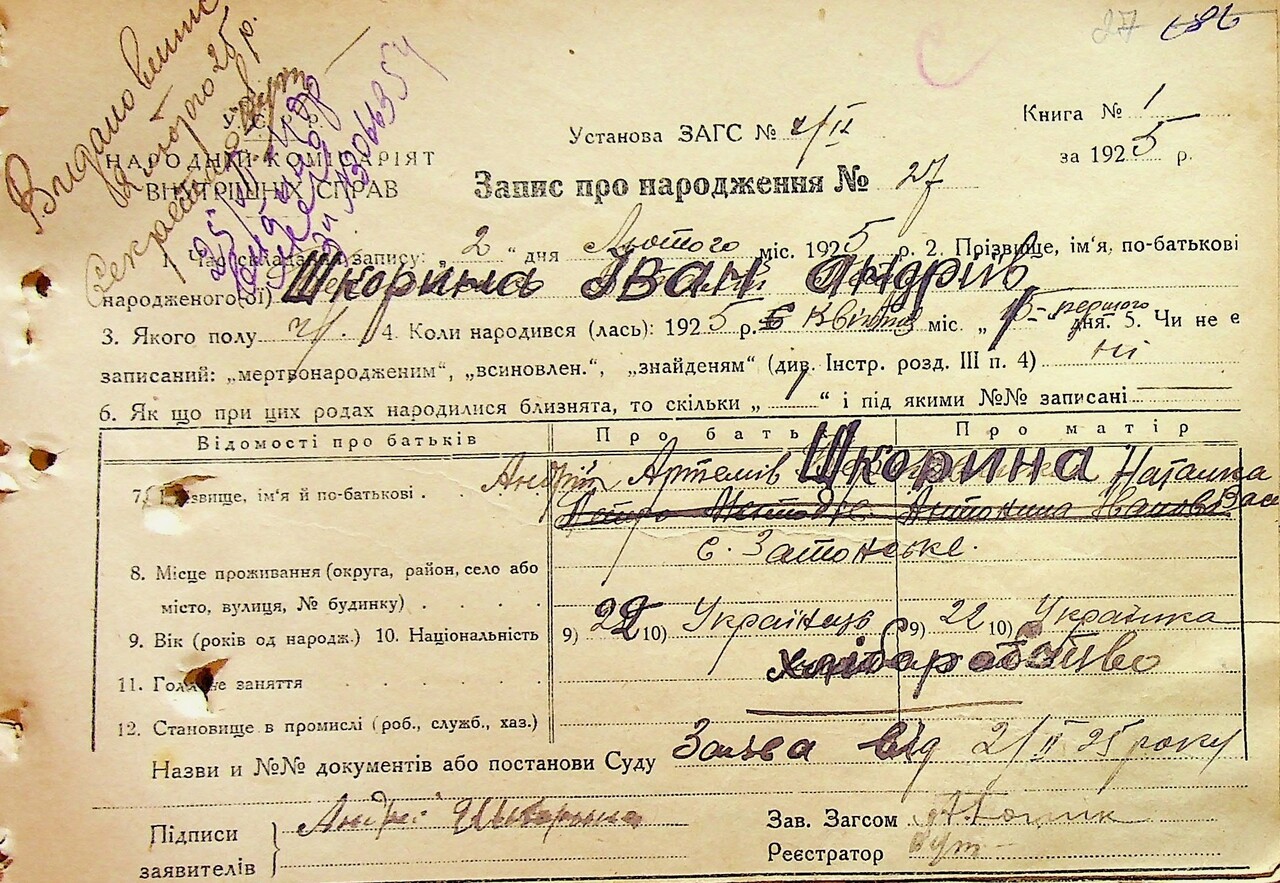 27
Видано виписа
Лютого 25 р.
Секретар
У.С.Р.Р.
НАРОДНІЙ КОМІСАРІЯТ
ВНУТРІШНІХ СПРАВ
Установа ЗАГС № 2/ІІ
Книга № 1
за 1925 р.
Запис про народження № 27
1. Час складання запису: „2“ дня Лютого міс. 1925 р. 2. Прізвище, ім'я, по-батькові
народженого(ої) Шкорина Іван Андріїв
3. Якого полу ч. 4. Коли народився (лась): 1925 р. міс. „ першого дня. 5. Чи не є
записаний: „мертвонародженим“, „всиновлен.“, „знайденям“ (див. Інстр. розд. III п. 4) ні
6. Як що при цих родах народилися близнята, то скільки „1“ і під якими №№ записані
Відомості про батьків
Про батька
Про матір
7. Прізвище, ім'я й по-батькові
Андрій Артемів Шкорина Наталка
с. Затонське.
8. Місце проживання (округа, район, село або
місто, вулиця, № будинку)
9. Вік (років од народж.) 10. Національність
9) 22 10) Українець 9) 22 10) Українка
11. Головне заняття
хліборобство
12. Становище в промислі (роб., служб., хаз.)
Назви и №№ документів або постанови Суду Заява від 2/ІІ 25 року
Підписи
заявителів
Андрій Шкорина
Зав. Загсом
Реєстратор